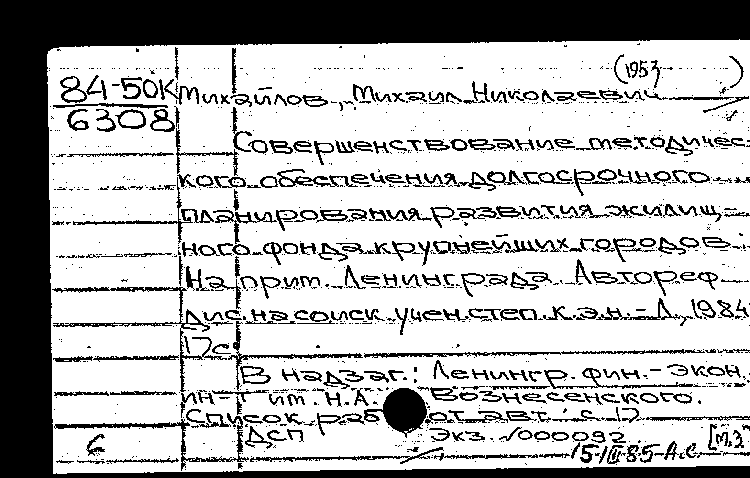 (1953 )
84-50К Михайлов, Михаил Николаевич
6308
Совершенствование методичес-
кого обеспечения долгосрочного
планирования развития жилищ-
ного фонда крупнейших городов.
На прим. Ленинграда Автореф
дис. на соиск учен. степ. к.э.н. - Л., 1984
17с.
В надзаг.: Ленингр. фин.-экон.
ин-т им. Н.А. Вознесенского.
Список работ авт.: с. 17
ДСП Экз. №000092 [М.З.
с 15-III 85-А.С.